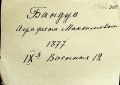 Бандув
Аграфена Максимовна
1877
IX з Военная 12